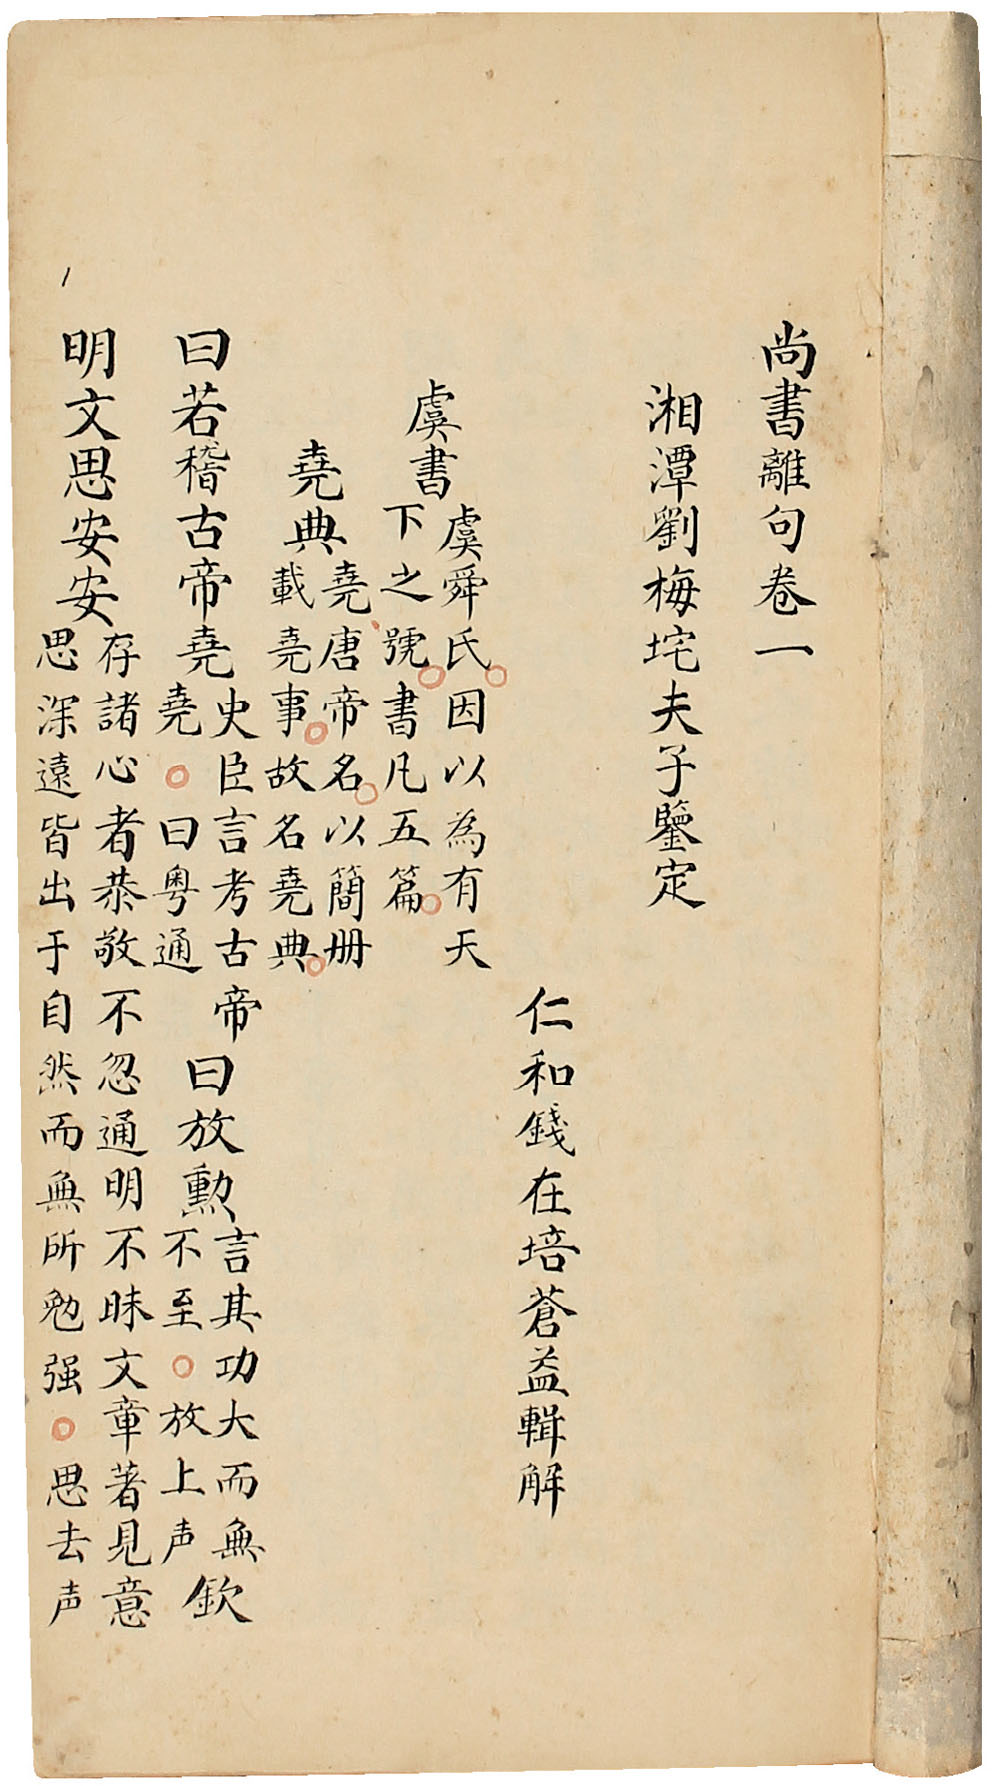 尚書離句卷一
湘潭劉梅垞夫子鑒定
仁和錢在培蒼益輯解
虞書虞舜氏因以為有天下之號書凡五篇
堯典堯唐帝名以簡册載堯事故名堯典
曰若稽古帝堯史臣言考古帝堯曰粵通曰放勲言其功大而無不至放上声欽
明文思安安存諸心者恭敬不忽通明不昧文章著見意思深遠皆出于自然而無所勉强思去声